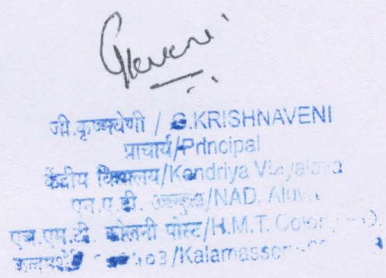 जी.कृष्णवेणी / G.KRISHNAVENI
प्राचार्य/Principal
केंद्रीय विद्यालय/Kendriya Vidyalaya
एन.ए.डी. /NAD,
एच.एम.टी. कोलनी पोस्ट/H.M.T. Colony
/Kalamassery